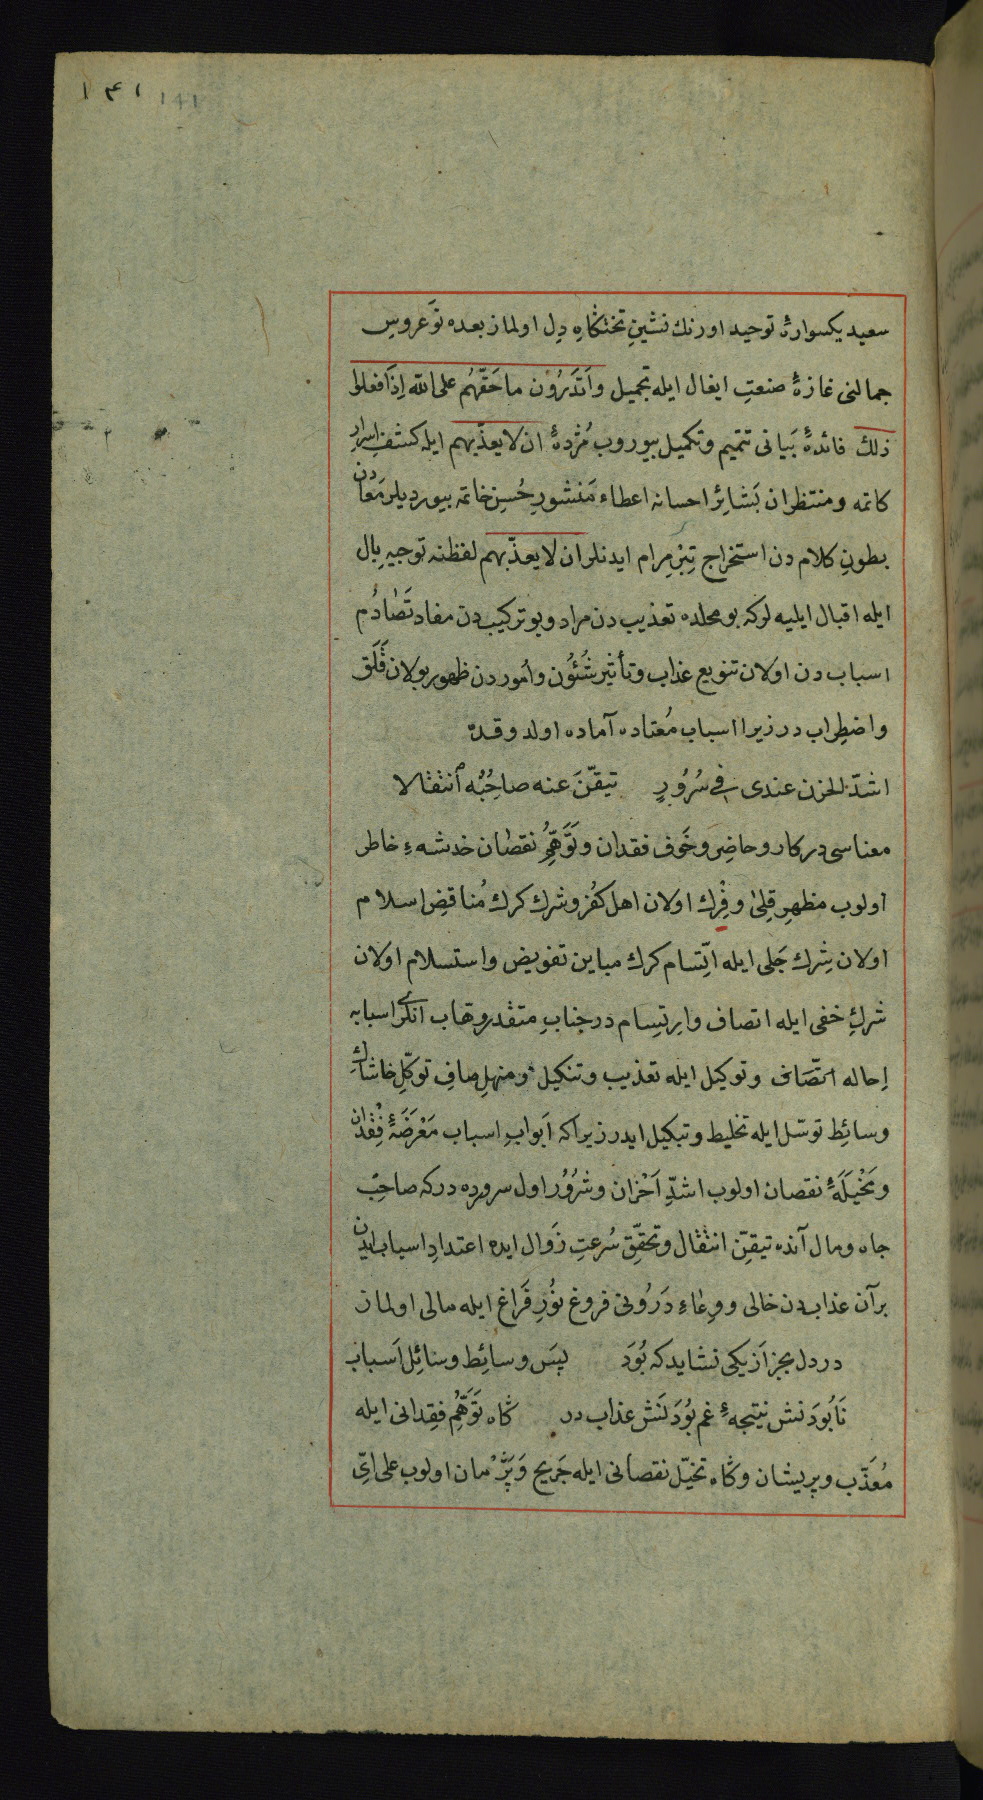 ١٤١ 141
سعيد يكسوارۀ توحيد اورنك نشينِ تختكاهِ دِل اولماز بعده نوعروسِ
جمالنى غازۀ صنعتِ ايغال ايله تجميل واَتَدَرُوْن ما حَقّهُم على الله اِذَا فعلوا
ذلك فائدۀ بَيانى تتميم وتكميل بيوروب مُژدۀ ان لا يعذّبهم ايله كشفِ اسرارِ
كاتمه ومنتظران بَشائِرْ احسانه اعطاء مَنشورِ حُسنِ خاتمه بيورديلر مَعادن
بطونِ كلام دن استخراج تِبْرِ مرام ايدنلر ان لا يعذّبهم لفظنه توجيهِ بال
ايله اقبال ايليه لر كه بو محلده تعذيب دن مراد و بو تركيب دن مفاد تَصَادُم
اسباب دن اولان تنويع عذاب وتأثير شُئُون وامُور دن ظهور بولان قَلَق
واضطِراب در زيرا اسباب مُعتاده آماده اولدوقده
اشدّ الحزن عندى فى سُرُورٍ تيقّنَ عنه صاحِبُه ٱنتقالا
معناسى دركار وحاضِر وخَوف فقدان وتَوَهُّمِ نقصان خدشهٔ خاطر
اولوب مظهرِ قِلىٰ وفِرْك اولان اهل كفر وشرك كرك مُناقِضِ اسلام
اولان شِرك جَلى ايله اتِّسام كرك مباين تفويض واستسلام اولان
شركِ خفى ايله اتصاف وارتِسام در جنابِ متفدر وهاب انلرى اسبابه
اِحاله اتّصاف وتوكيل ايله تعذيب وتنكيل ومنهلِ صافِ توكّلِ خاشاكِ
وسائِط توسّل ايله تخليط وتبكيل ايدر زيرا كه اَبوابِ اسباب مَعْرَضَۀ فِقْدان
ومَخْيَلَۀ نقصان اولوب اشدّ اَحْزان وشُرُوْر اول سرورده در كه صاحِبْ
جاه ومال آنده تيقّنِ انتقال وتحقّقِ سُرعتِ زَوال ايده اعتدادِ اسباب ايدن
بر آن عذاب دن خالى ووِعاءِ دَرُونى فروغِ نُوْرِ فَراغ ايله مالى اولماز
در دل بجز اَز يكى نشايد كه بُوَد پس وسائِط وسائِلِ اَسبابْ
نَابُودَنش نتيجۀ غم بُوَدَنَش عذاب در كاه تَوَهُّمِ فِقِدانى ايله
مُعَذَّب وپريشان وكاه تخيّل نقصانى ايله جَريح وَپَژْمان اولوب على اىّ